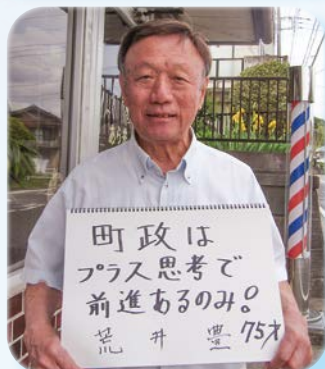 町政は
プラス思考で
前進あるのみ!
荒井 豊 75才